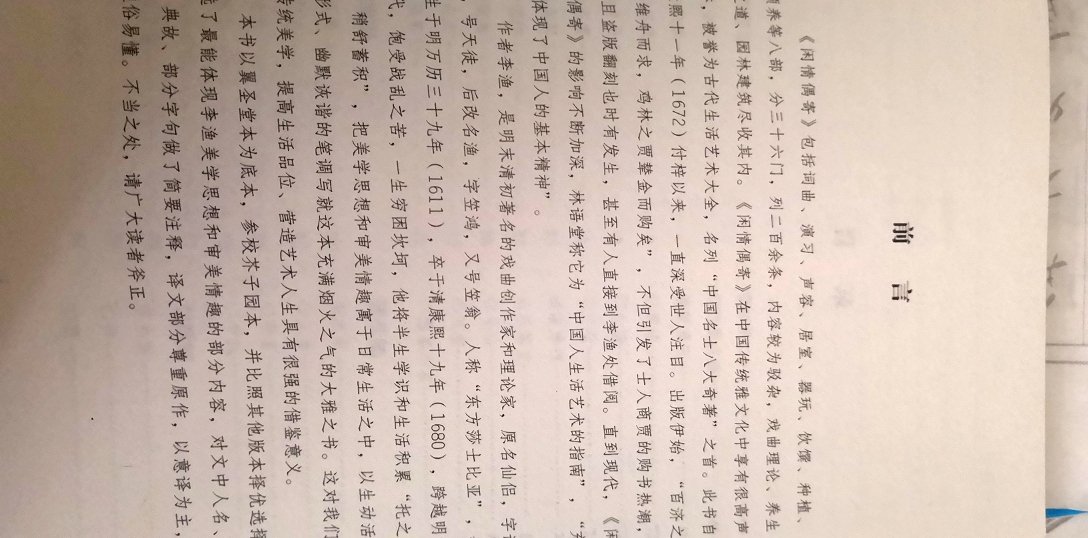 前言
《闲情偶寄》包括词曲、演习、声容、居室、器玩、饮馔、种植、
颐养等八部，分三十六门，列二百余条，内容较为驳杂，戏曲理论、养生
之道、园林建筑尽收其内。《闲情偶寄》在中国传统雅文化中享有很高声
，被誉为古代生活艺术大全，名列“中国名士八大奇著”之首。此书自
熙十一年（1672）付梓以来，一直深受世人注目。出版伊始，“百济之
维舟而求，鸡林之贾辇金而购矣”，不但引发了士人商贾的购书热潮，
且盗版翻刻也时有发生，甚至有人直接到李渔处借阅。直到现代，《闲
偶寄》的影响不断加深，林语堂称它为“中国人生活艺术的指南”，“充
体现了中国人的基本精神”。
作者李渔，是明末清初著名的戏曲创作家和理论家，原名仙侣，字谪
，号天徒，后改名渔，字笠鸿，又号笠翁。人称“东方莎士比亚”，
生于明万历三十九年（1611），卒于清康熙十九年（1680），跨越明
代，饱受战乱之苦，一生穷困坎坷，他将半生学识和生活积累“托之
稍舒蓄积”，把美学思想和审美情趣寓于日常生活之中，以生动活
形式、幽默诙谐的笔调写就这本充满烟火之气的大雅之书。这对我们
传统美学，提高生活品位、营造艺术人生具有很强的借鉴意义。
本书以翼圣堂本为底本，参校芥子园本，并比照其他版本择优选择
选了最能体现李渔美学思想和审美情趣的部分内容，对文中人名、
典故、部分字句做了简要注释，译文部分尊重原作，以意译为主，
俗易懂。不当之处，请广大读者斧正。